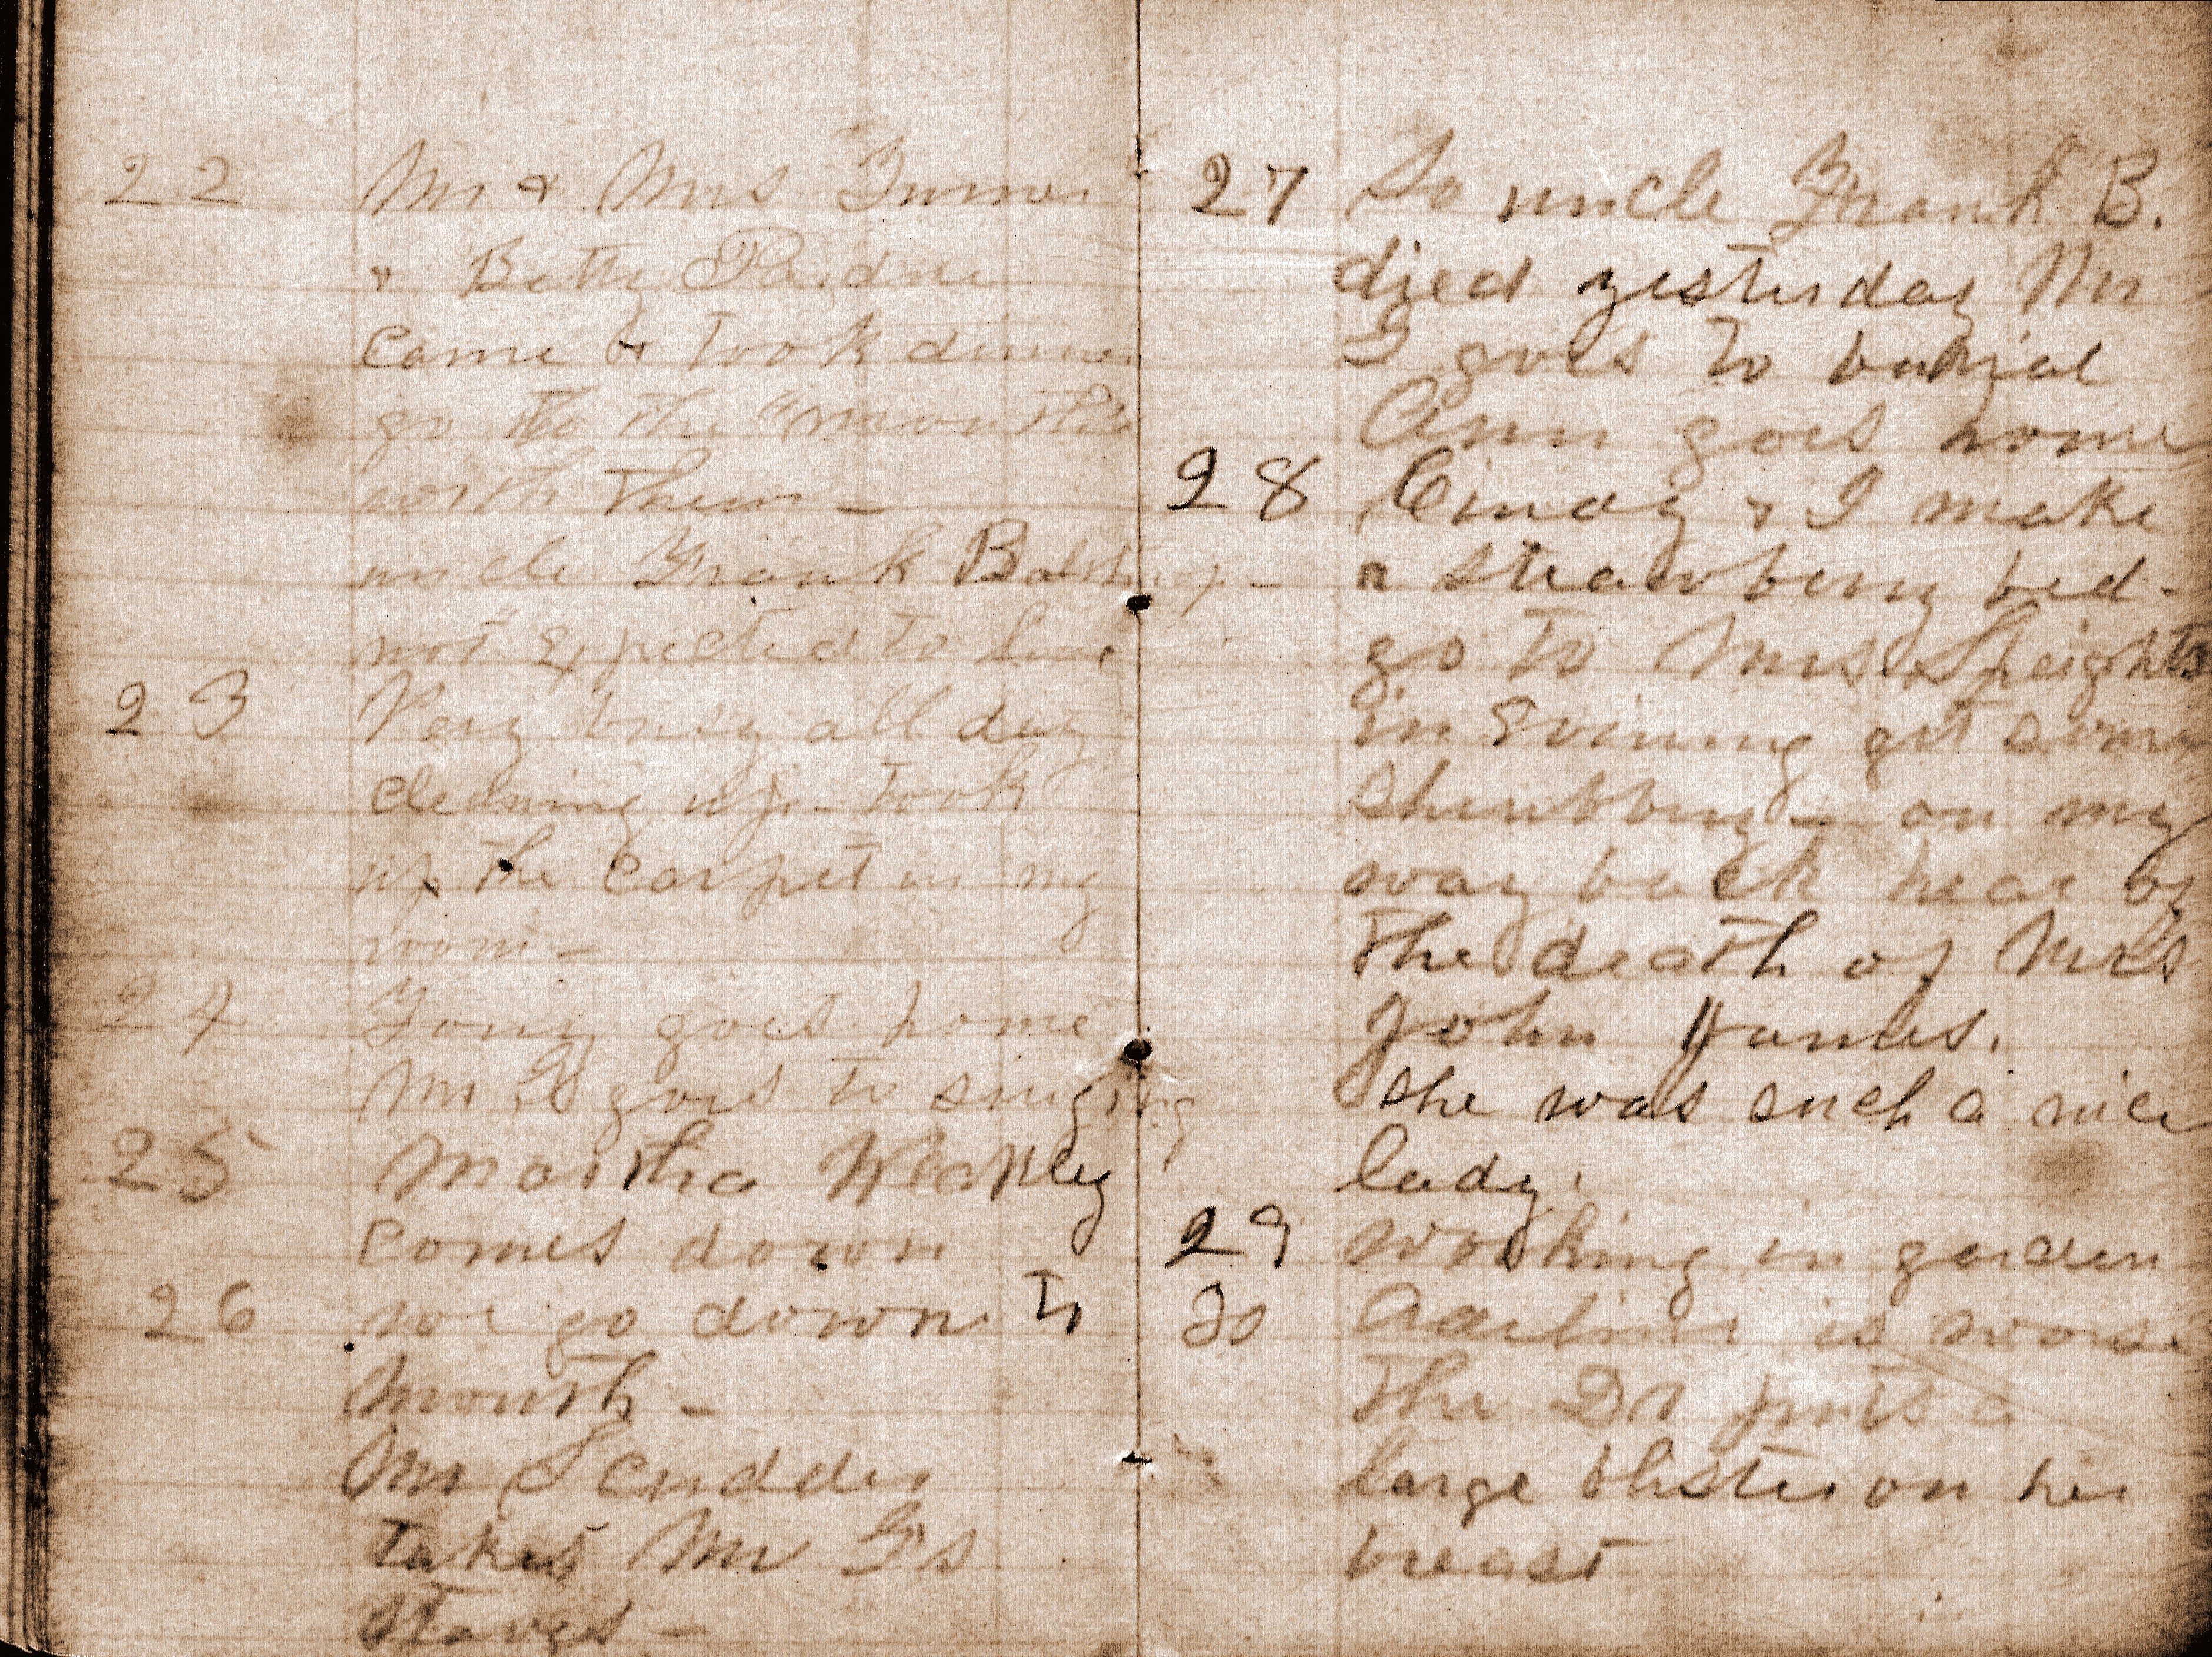 22 Mr & Mrs Turner
& Betty Perdue
came & took dinner
go to the "mouth"
with them –
uncle Frank
not Expected to live
23 Very busy all day
cleaning up – took
up the carpet in my
room –
24 Tony goes home
Mr goes to singing
25 Martha Weakley
comes down
26 we go down to
mouth –
Mr Scudder
takes Mr
staves –
27 So uncle Frank B.
died yesterday Mr
goes to burial
Ann goes home
28 Cindy & I make
a strawberry bed –
go to Mrs Speights
in Evening get some
shrubbery – on my
way back hear of
the death of Mrs
John
she was such a nice
lady.
29 working in garden
30 is worse
the Dr puts a
large blister on her
breast